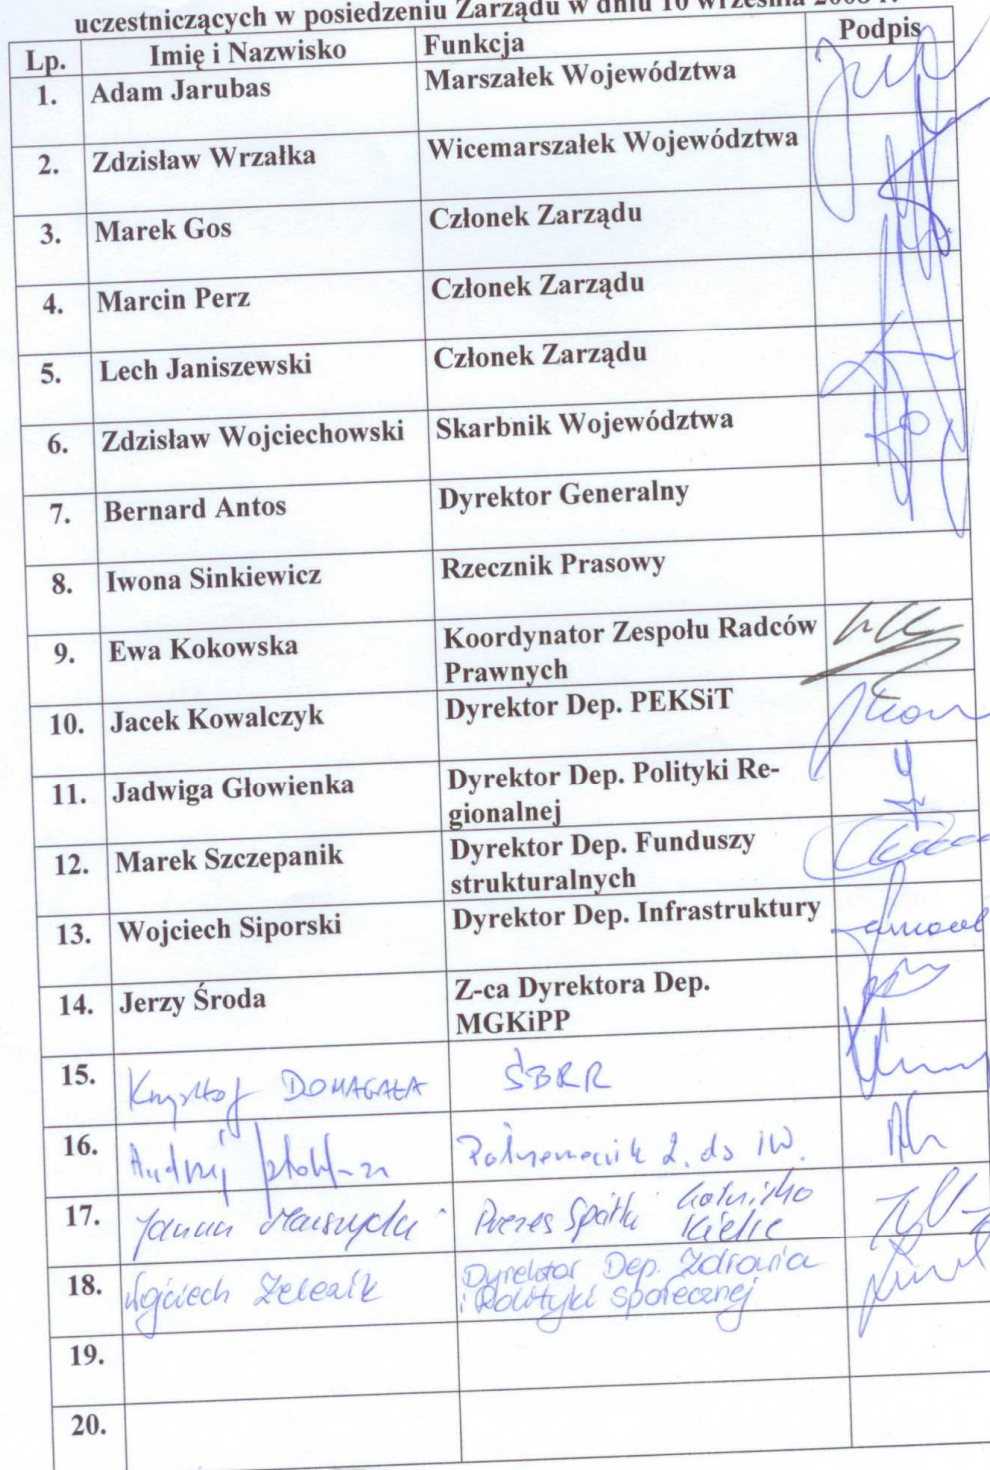 uczestniczących w posiedzeniu Zarządu w dniu 10 września 2008 r.
Lp. Imię i Nazwisko Funkcja Podpis
1. Adam Jarubas Marszałek Województwa
2. Zdzisław Wrzałka Wicemarszałek Województwa
3. Marek Gos Członek Zarządu
4. Marcin Perz Członek Zarządu
5. Lech Janiszewski Członek Zarządu
6. Zdzisław Wojciechowski Skarbnik Województwa
7. Bernard Antos Dyrektor Generalny
8. Iwona Sinkiewicz Rzecznik Prasowy
9. Ewa Kokowska Koordynator Zespołu Radców
Prawnych
10. Jacek Kowalczyk Dyrektor Dep. PEKSiT
11. Jadwiga Głowienka Dyrektor Dep. Polityki Re-
gionalnej
12. Marek Szczepanik Dyrektor Dep. Funduszy
strukturalnych
13. Wojciech Siporski Dyrektor Dep. Infrastruktury
14. Jerzy Środa Z-ca Dyrektora Dep.
MGKiPP
15. Krzysztof DOMAGAŁA ŚBRR
16. Andrzej
17. Prezes Spółki Lotnisko
Kielce
18. Wojciech Dyrektor Dep. Zdrowia
i Polityki Społecznej
19.
20.